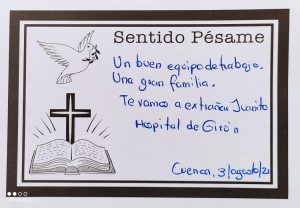 Sentido Pésame
Un buen equipo de trabajo.
Una gran familia.
Te vamos a extrañar Juanito
Hospital de Girón
Cuenca, 3/agosto/21